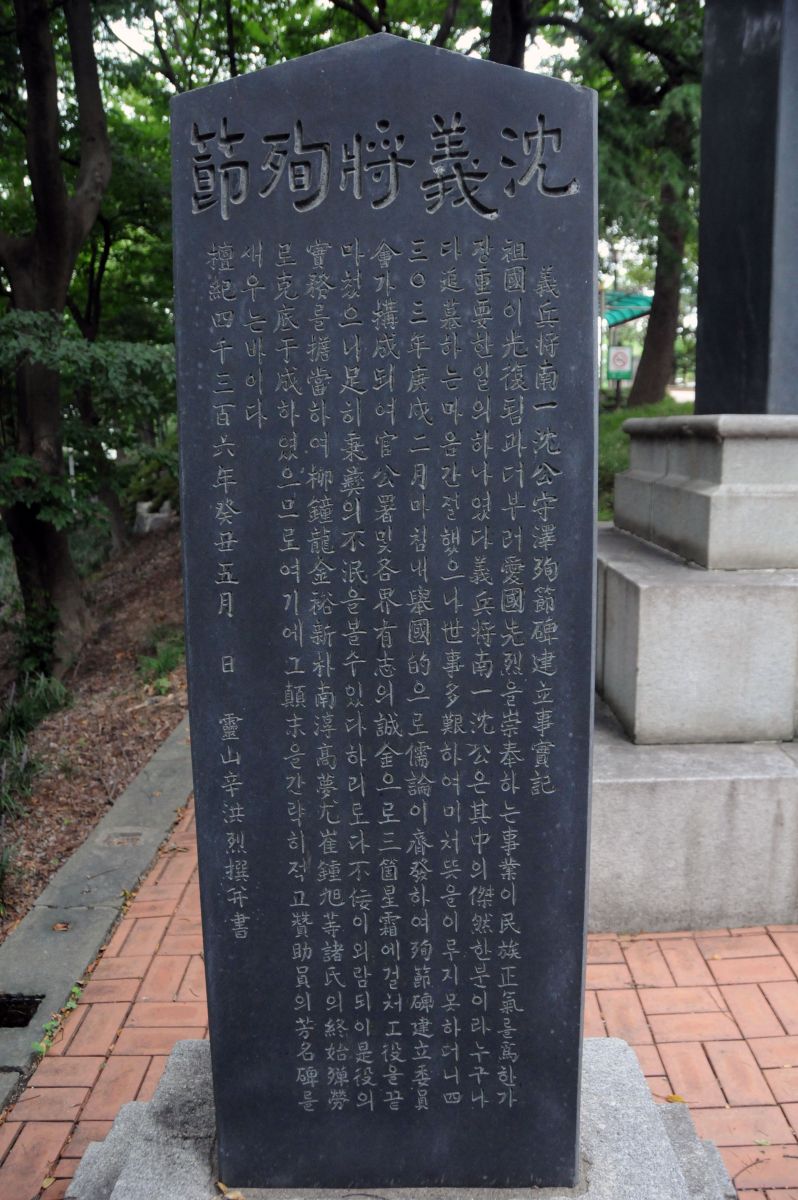 沈義將殉節
義兵將南一沈公守澤殉節碑建立事實記
祖國이光復됨과더부러愛國先烈을崇奉하는事業이民族正氣를爲한가
장重要한일의하나였다義兵將南一沈公은其中의傑然한분이라누구나
다追慕하는마음간절했으나世事多艱하여미처뜻을이루지못하더니四
三○三年庚戌二月마침내擧國的으로儒論이齊發하여殉節碑建立委員
會가構成되여官公署및各界有志의誠金으로三箇星霜에걸처工役을끝
마쳤으니足히秉彝의不泯을볼수있다하리로다不侫이외람되이是役의
實務를擔當하여柳鐘龍金裕新朴南淳高夢尤崔鍾旭等諸氏의終始殫勞
로克底于成하였으므로여기에그顛末을간략히적고贊助員의芳名碑를
새우는바이다
檀紀四千三百六年癸丑五月 日 靈山辛洪烈撰幷書